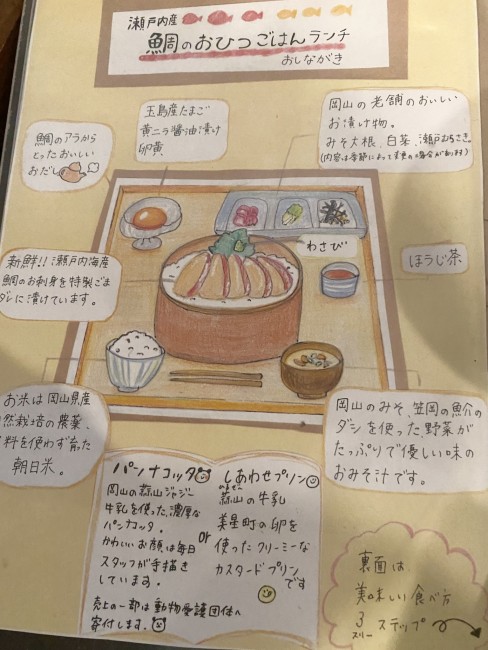 瀬戸内産
鯛のおひつごはんランチ
おしながき
玉島産たまご
黄ニラ醤油漬け
卵黄
岡山の老舗のおいしい
お漬け物。
みそ大根、白菜、瀬戸むらさき
(内容は季節によって変更の場合があります)
鯛のアラから
とったおいしい
おだし
わさび
ほうじ茶
新鮮!!瀬戸内海産
鯛のお刺身を特製ごま
ダシに漬けています。
お米は岡山県産
然栽培の農薬、
料を使わず育た
朝日米。
岡山のみそ、笠岡の魚介の
ダシを使った野菜が
たっぷりで優しい味の
おみそ汁です。
パンナコッタ
岡山の蒜山ジャージー
牛乳を使った濃厚な
パンナコッタ。
かわいいお顔は毎日
スタッフが手描き
しています。
売上の一部は動物愛護団体へ
寄付します。
or
しあわせプリン
蒜山の牛乳
美星町の卵を
使ったクリーミーな
カスタードプリン
です
裏面は
美味しい食べ方
3ステップ
スリー